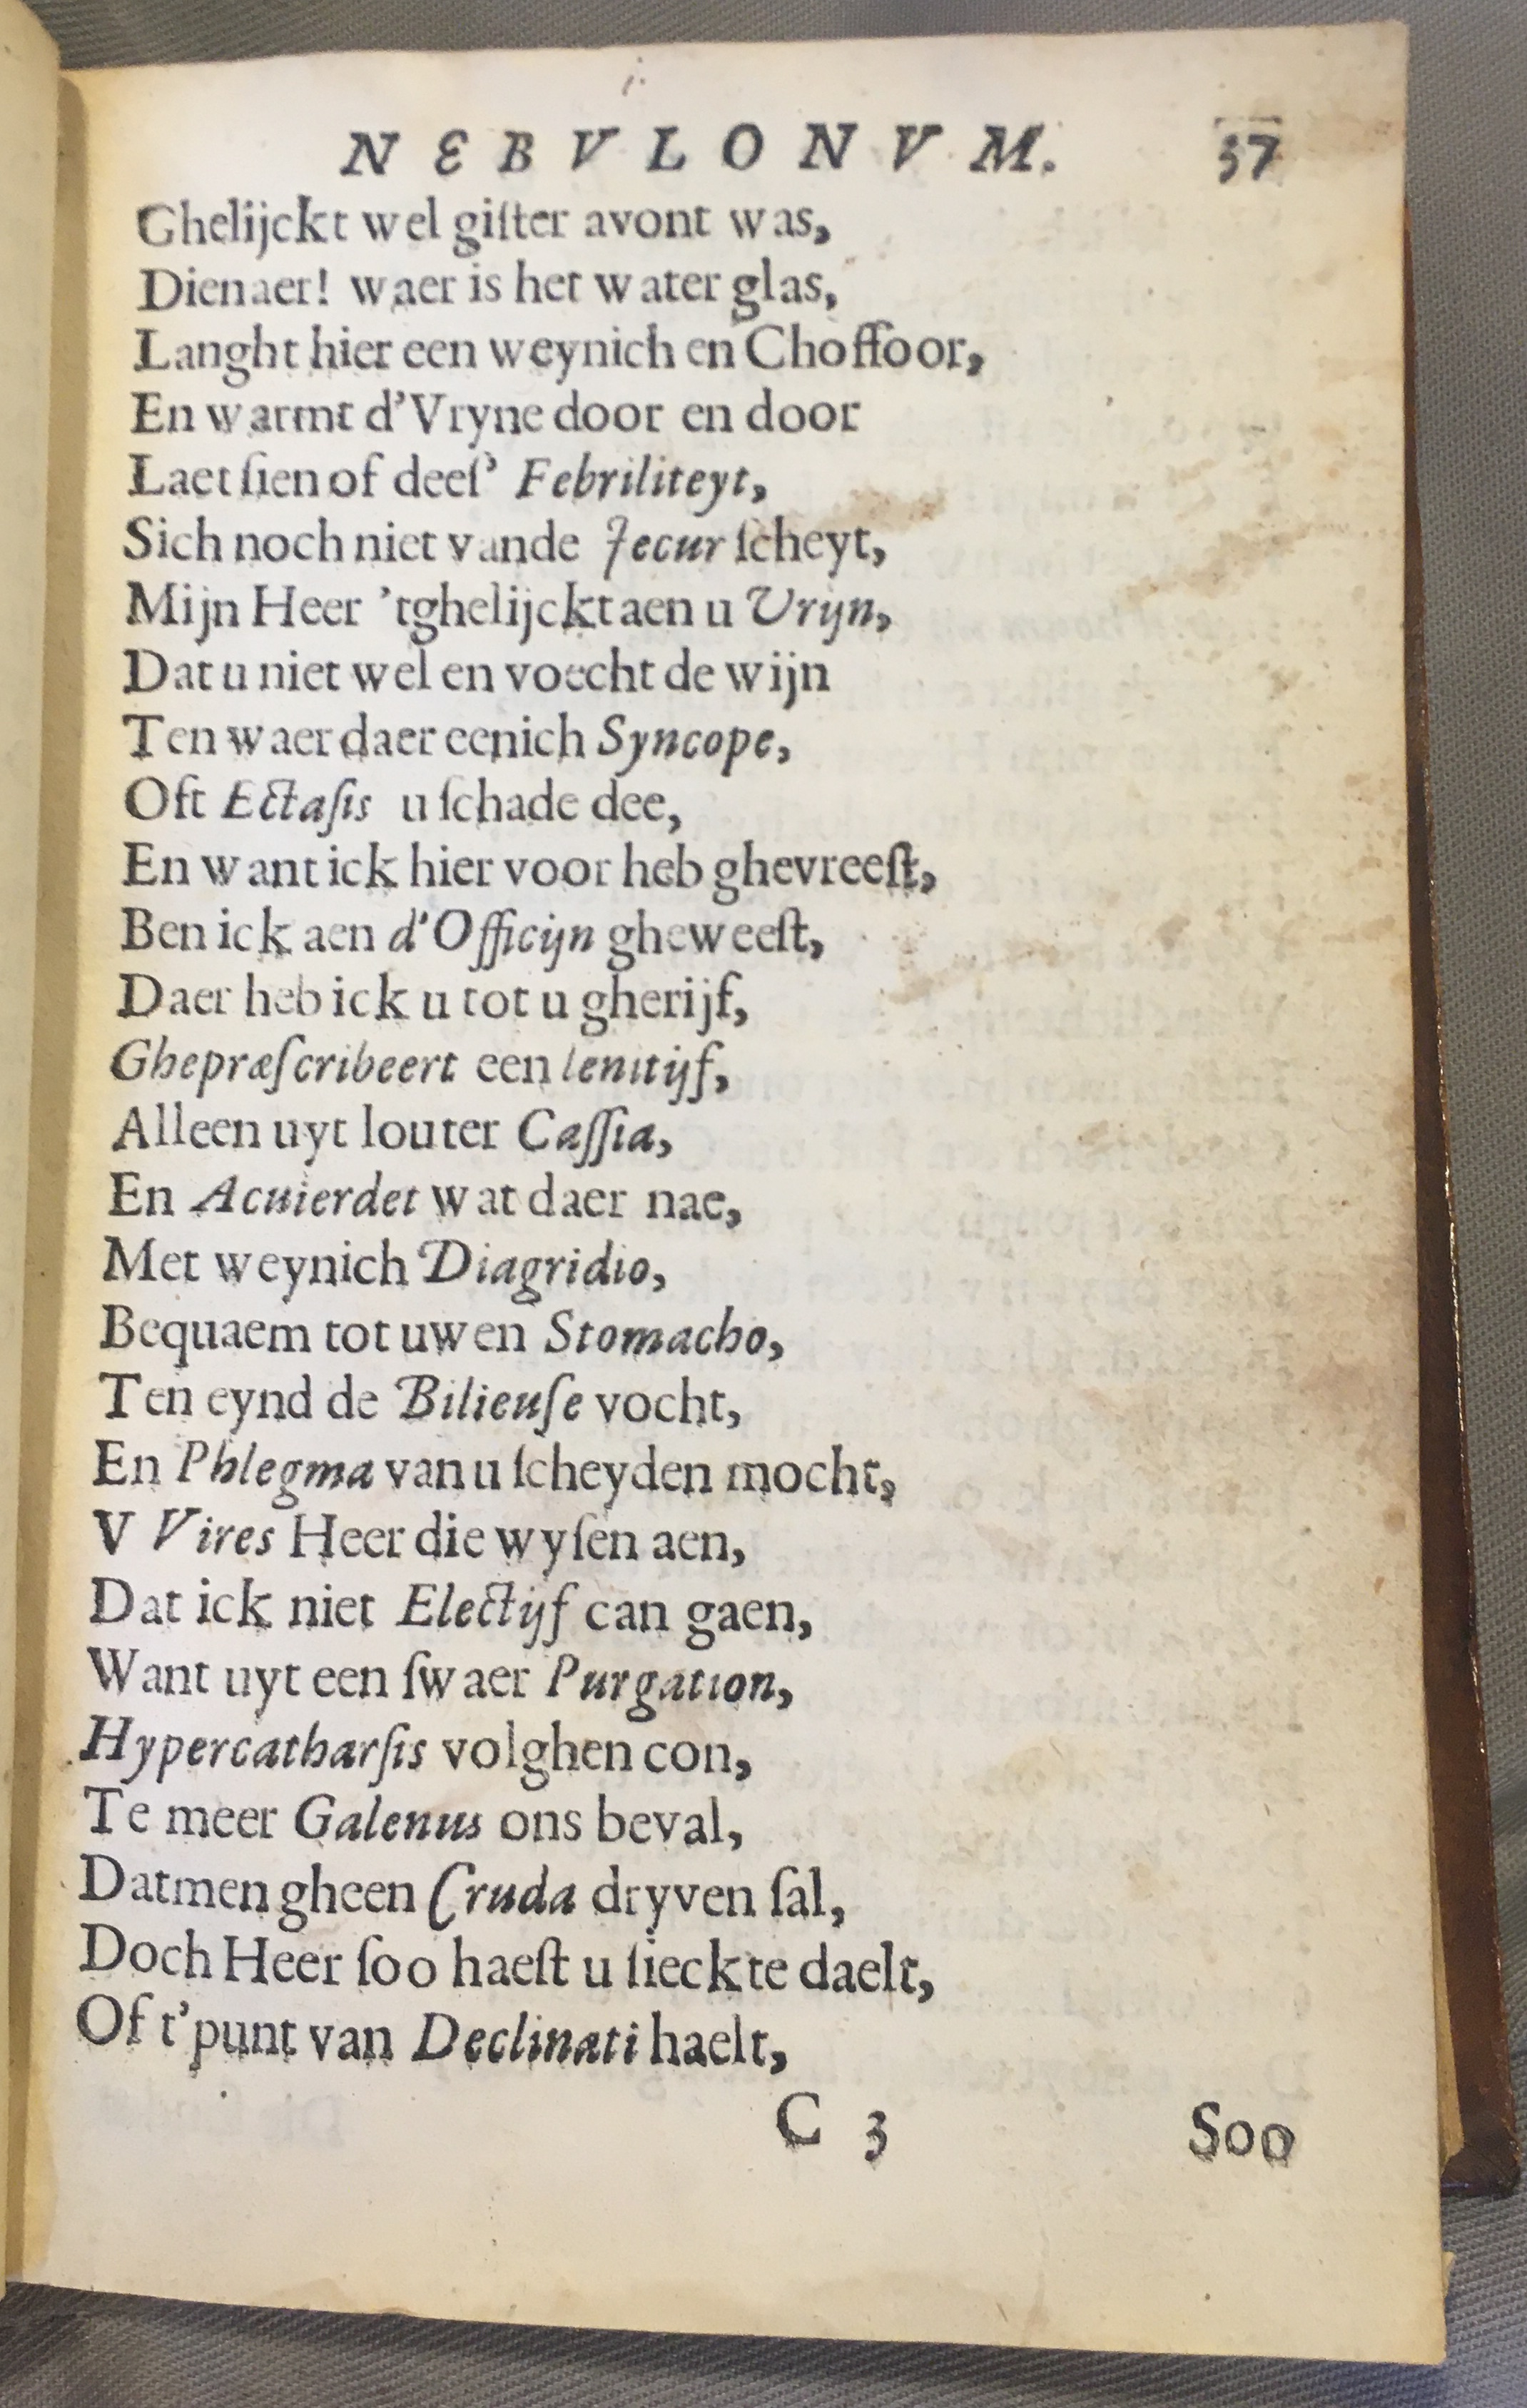 NEBVLONVM. 37
Ghelijckt wel giſter avont was,
Dienaer! waer is het water glas,
Langht hier een weynich en Choffoor,
En warmt d'Vryne door en door
Laet ſien of deeſ' Febriliteyt,
Sich noch niet vande Jecur ſcheyt,
Mijn Heer 'tghelijckt aen u Vrijn,
Dat u niet wel en voecht de wijn
Ten waer daer eenich Syncope,
Oft Ectaſis u ſchade dee,
En want ick hier voor heb ghevreeſt,
Ben ick aen d'Officijn gheweeſt,
Daer heb ick u tot u gherijf,
Ghepræſcribeert een lenitijf,
Alleen uyt louter Caſſia,
En Acuierdet wat daer nae,
Met weynich Diagridio,
Bequaem tot uwen Stomacho,
Ten eynd de Bilieuſe vocht,
En Phlegma van u ſcheyden mocht,
V Vires Heer die wyſen aen,
Dat ick niet Electijf can gaen,
Want uyt een ſwaer Purgation,
Hypercatharſis volghen con,
Te meer Galenus ons beval,
Datmen gheen Cruda dryven ſal,
Doch Heer ſoo haeſt u ſieckte daelt,
Of t'punt van Declinati haelt,
C 3 Soo